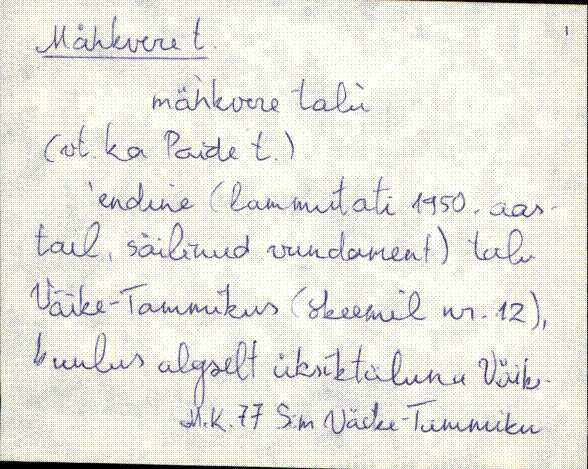 Mähkvere t.
1
mäh̀kvere talù
(vt. ka Paide t.)
'endine (lammutati 1950. aas-
tail, säilinud vundament) talu
Väike-Tammikus (skeemil nr. 12),
kuulus algselt üksiktaluna Väik-
M.K. 77 Sim Väike-Tammiku